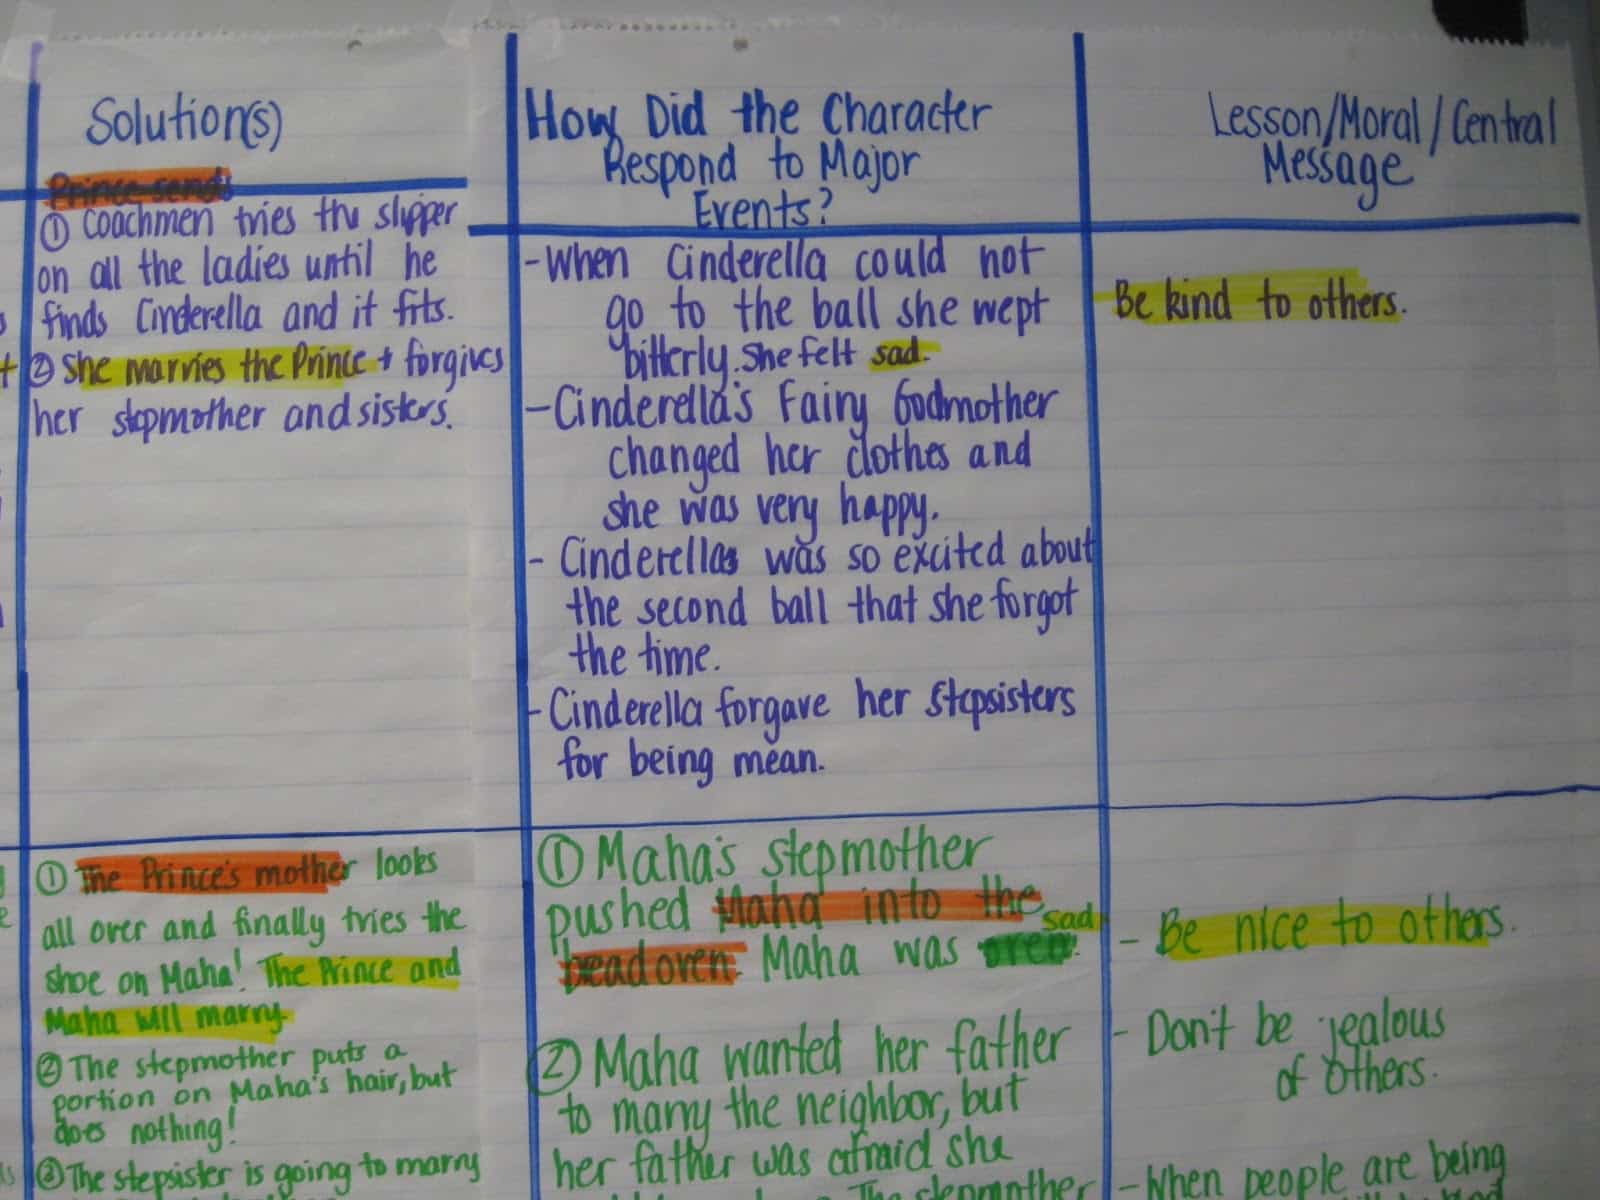 Solution(s)
Prince sends
① Coachmen tries thu slipper
on all the ladies until he
finds Cinderella and it fits.
② She marries the Prince + forgives
her stepmother and sisters.
How Did the Character
Respond to Major
Events?
-When Cinderella could not
go to the ball she wept
bitterly. She felt sad.
-Cinderella's Fairy Godmother
changed her clothes and
she was very happy.
- Cinderella was so excited about
the second ball that she forgot
the time.
-Cinderella forgave her stepsisters
for being mean.
Lesson/Moral/Central
Message
Be kind to others.
① The Prince's mother looks
all over and finally tries the
shoe on Maha! The Prince and
Maha will marry.
② The stepmother puts a
portion on Maha's hair, but
does nothing!
③ The stepsister is going to marry
① Maha's stepmother
pushed Maha into the
bead oven. Maha was sad
② Maha wanted her father
to marry the neighbor, but
her father was afraid she
The stepmother
- Be nice to others.
- Don't be jealous
of others.
- When people are being